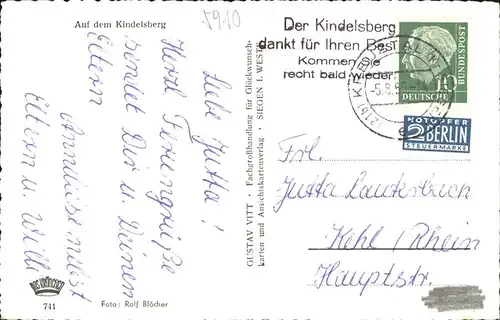 Auf dem Kindelsberg
5910
Liebe Jutta!
Herzl. Feriengrüße
sendet Dir u. Deinen
Eltern
Annliese nebst
Eltern u. Willi
741
Foto: Rolf Blöcher
GUSTAV VITT · Fachgroßhandlung für Glückwunsch-
karten und Ansichtskartenverlag · SIEGEN I. WESTF.
Der Kindelsberg
dankt für Ihren Besuch
Kommen Sie
recht bald wieder
KREUZTAL
DEUTSCHE
BUNDESPOST
10
NOTOPFER
2 BERLIN
STEUERMARKE
Frl.
Jutta Lauterbach
Kehl / Rhein
Hauptstr.